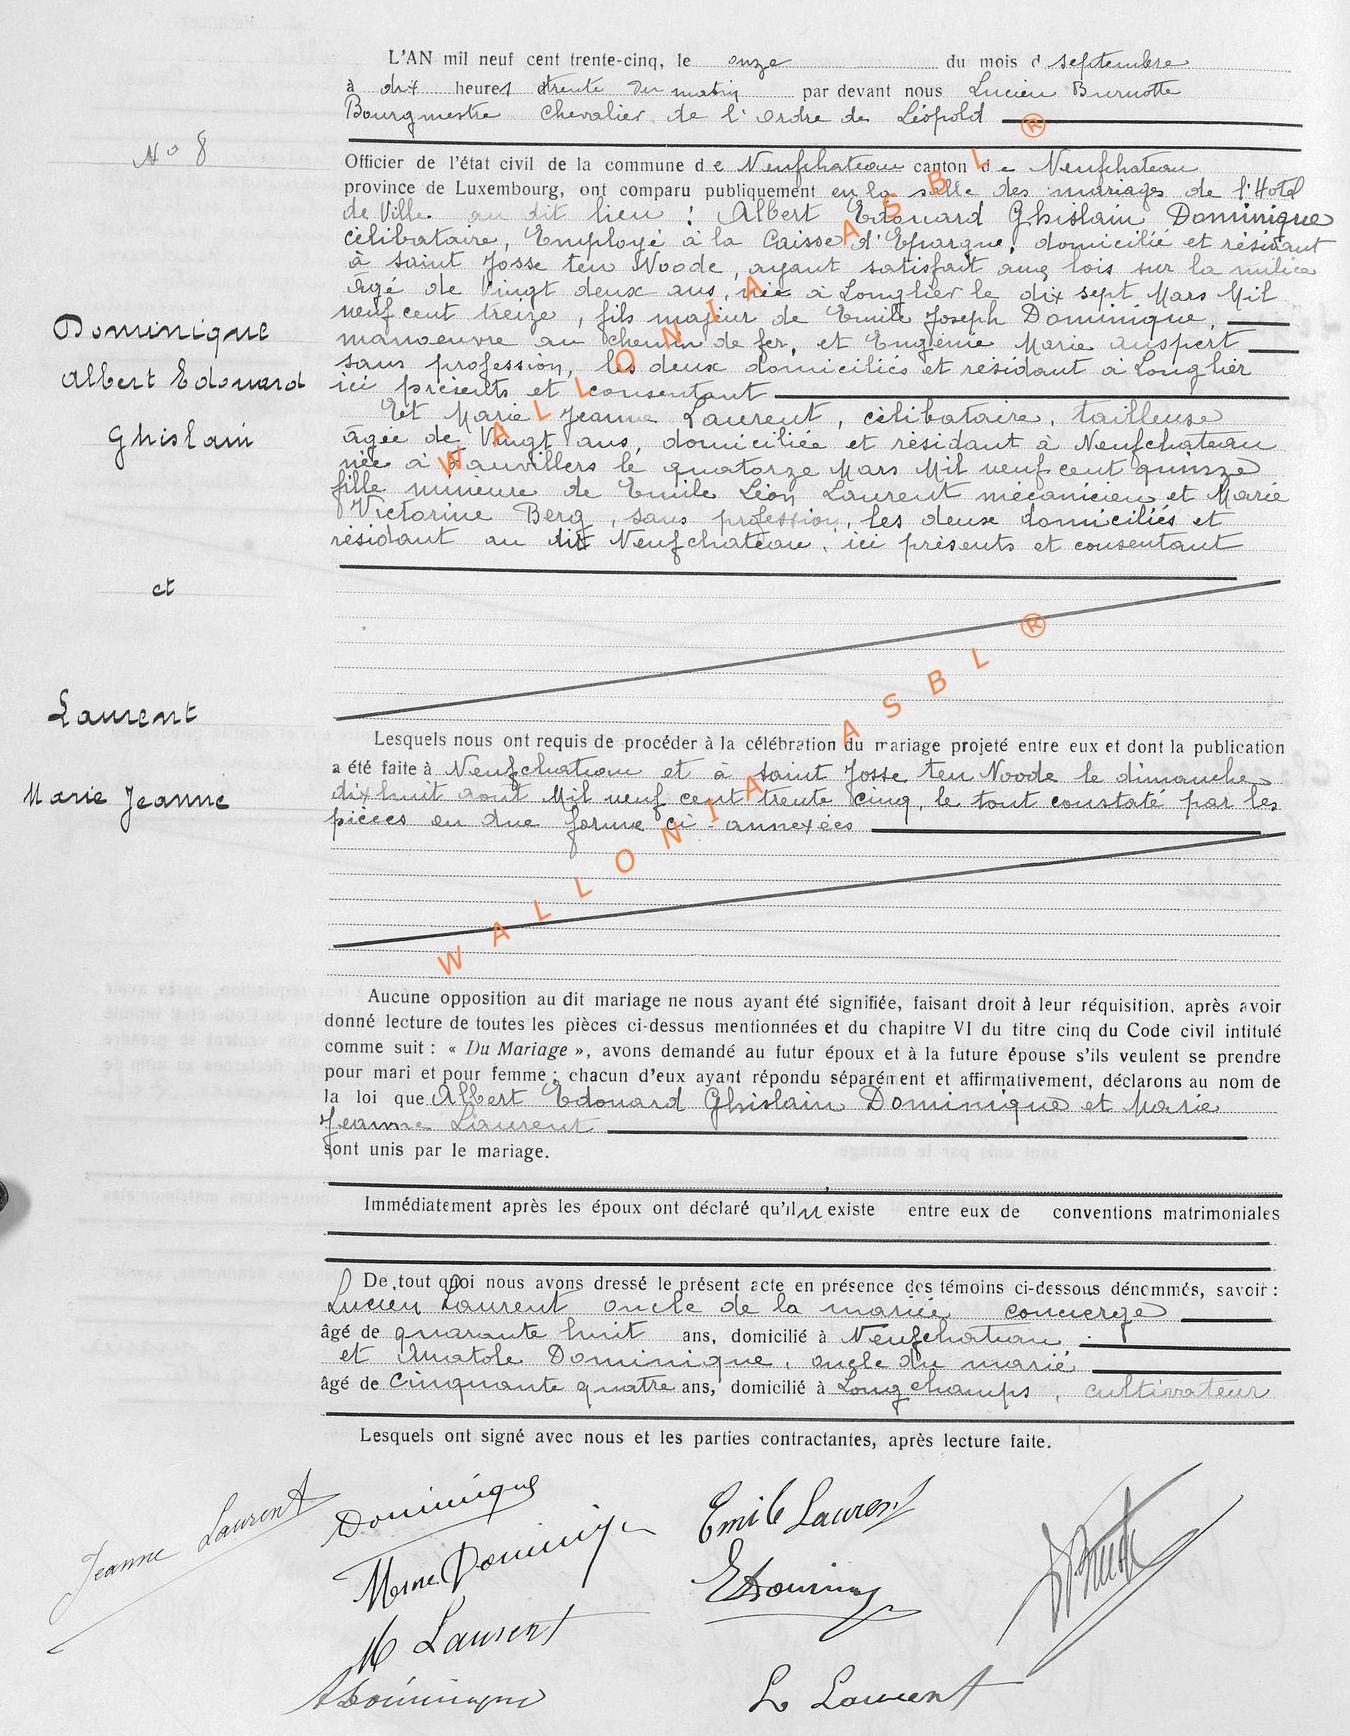 L'AN mil neuf cent trente-cinq, le onze du mois d septembre
à dix heures trente du matin par devant nous Lucien Burnotte
Bourgmestre Chevalier de l'ordre de Léopold
N° 8
Officier de l'état civil de la commune de Neufchateau canton de Neufchateau
province de Luxembourg, ont comparu publiquement en la salle des mariages de l'Hotel
de Ville au dit lieu : Albert Edouard Ghislain Dominique
célibataire, Employé à la Caisse d'Epargne, domicilié et résidant
à saint Josse ten Noode, ayant satisfait aux lois sur la milice
âgé de Vingt deux ans, née à Longlier le dix sept Mars Mil
neuf cent treize, fils majeur de Emile Joseph Dominique,
manœuvre au chemin de fer, et Eugénie Marie Auspert
sans profession, les deux domiciliés et résidant à Longlier
ici présents et consentant
Et Marie Jeanne Laurent, célibataire, tailleuse
âgée de Vingt ans, domiciliée et résidant à Neufchateau
née à Fauvillers le quatorze Mars Mil neuf cent quinze
fille mineure de Emile Léon Laurent mécanicien et Marie
Victorine Berg, sans profession, les deux domiciliés et
résidant au dit Neufchateau, ici présents et consentant
Dominique
Albert Edouard
Ghislain
et
Laurent
Marie Jeanne
Lesquels nous ont requis de procéder à la célébration du mariage projeté entre eux et dont la publication
a été faite à Neufchateau et à saint Josse ten Noode le dimanche
dix huit août Mil neuf cent trente cinq, le tout constaté par les
pièces en due forme ci-annexées
Aucune opposition au dit mariage ne nous ayant été signifiée, faisant droit à leur réquisition, après avoir
donné lecture de toutes les pièces ci-dessus mentionnées et du chapitre VI du titre cinq du Code civil intitulé
comme suit : « Du Mariage », avons demandé au futur époux et à la future épouse s'ils veulent se prendre
pour mari et pour femme ; chacun d'eux ayant répondu séparément et affirmativement, déclarons au nom de
la loi que Albert Edouard Ghislain Dominique et Marie
Jeanne Laurent
sont unis par le mariage.
Immédiatement après les époux ont déclaré qu'il n existe entre eux de conventions matrimoniales
De tout quoi nous avons dressé le présent acte en présence des témoins ci-dessous dénommés, savoir :
Lucien Laurent oncle de la mariée concierge
âgé de quarante huit ans, domicilié à Neufchateau
et Anatole Dominique, oncle du marié
âgé de cinquante quatre ans, domicilié à Longchamps, cultivateur
Lesquels ont signé avec nous et les parties contractantes, après lecture faite.
Jeanne Laurent
Dominique
Emile Laurent
Mme Dominique
EDominique
M Laurent
ADominique
L Laurent
WALLONIA ASBL ®
WALLONIA ASBL ®